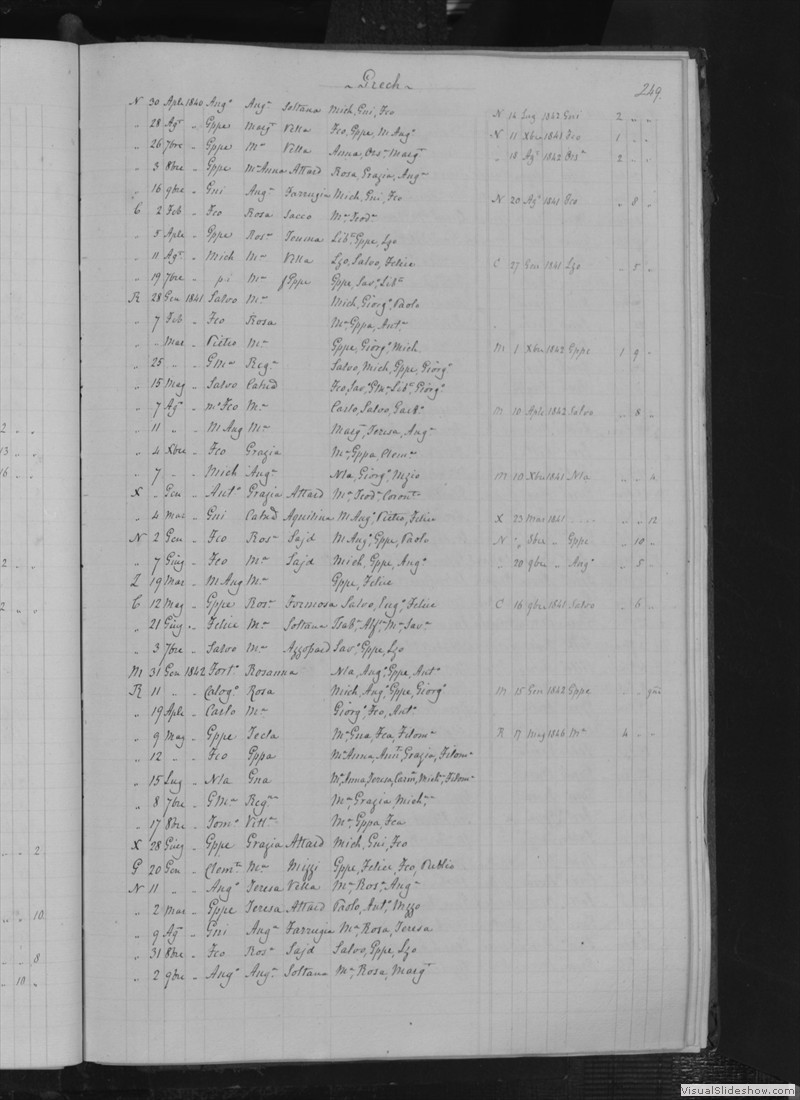 Grech
249.
N 30 Aple 1840 Ang.o Ang.a Soltana Mich, Gni, Fco N 14 Lug 1842 Gni 2 " "
" 28 Ag.t " Gppe Marg.t Vella Fco, Gppe, M Ang.o N 11 Xbre 1841 Fco 1 " "
" 26 7bre " Gppe M.a Vella Anna, Ors.a Marg.t " 18 Ag.t 1842 Ors.a 2 " "
" 3 8bre " Gppe M.a Anna Attard Rosa, Grazia, Ang.a
" 16 9bre " Gni Ang.a Farrugia Mich, Gni, Fco N 20 Ag.t 1841 Fco " 8 "
C 2 Feb " Fco Rosa Sacco M.a Teod.a
" 5 Aple " Gppe Ros.a Gppe, Lzo
" 11 Ag.t " Mich M.a Vella Lzo, Salvo, Felice C 27 Gen 1841 Lzo " 5 "
" 19 7bre " M.a Gppe Gppe, Sav.a
R 28 Gen 1841 Salvo M.a Mich, Giorg.o Paolo
" 7 Feb " Fco Rosa M.a Gppa, Ant.a
" " Mar " Pietro M.a Gppe, Giorg.o Mich M 1 Xbre 1842 Gppe 1 9 "
" 25 " " GM.a Reg.a Salvo, Mich, Gppe, Giorg.o
" 15 Mag " Salvo Catrid Fco, Sav.a GM.a Giorg.o
" 7 Ag.t " Fco M.a Carlo, Salvo, M 10 Aple 1842 Salvo " 8 "
" 11 " " M Ang M.a Marg.t Teresa, Ang.a
" 4 Xbre " Fco Grazia M.a Gppa, Clem.a
" 7 " " Mich Ang.a Nla, Giorg.o M 10 Xbre 1841 Nla " " 4
X " Gen " Ant.o Grazia Attard M.a Teod.a
" 4 Mar " Gni Catrid Aquilina M Ang.o Pietro, Felice X 23 Mar 1841 " " 12
N 2 Gen " Fco Ros.a Sajd M Ang.o Gppe, Paolo N " 8bre " Gppe " 10 "
" 7 Giug " Fco M.a Sajd Mich, Gppe, Ang.o " 20 9bre " Ang.o " 5 "
Z 19 Mar " M Ang M.a Gppe, Felice
C 12 Mag " Gppe Ros.a Formosa Salvo, Felice C 16 9bre 1841 Salvo " 6 "
" 21 Giug " Felice M.a Soltana M.a Sav.a
" 3 7bre " Salvo M.a Azzopard Sav.a Gppe, Lzo
M 31 Gen 1842 Fort.o Rosanna Nla, Ang.o Gppe, Ant.o
R 11 " " Calog.o Rosa Mich, Ang.o Gppe, Giorg.o M 15 Gen 1842 Gppe
" 19 Aple " Carlo M.a Giorg.o Fco, Ant.o
" 9 Mag " Gppe Tecla M.a Gna, Fca, Filom.a R 17 Mag 1846 M.a 4 " "
" 12 " " Fco Gppa M.a Anna, Grazia, Filom.a
" 15 Lug " Nla Gna M.a Anna, Teresa, Carm.a Filom.a
" 8 7bre " GM.a Reg.na M.a Grazia, Mich.a
" 17 8bre " Tom.o Vitt.a M.a Gppa, Fca
X 28 Giug " Gppe Grazia Attard Mich, Gni, Fco
G 20 Gen " Clem.te M.a Mizzi Gppe, Felice, Fco, Publio
N 11 " " Ang.o Teresa Vella M.a Ros.a Ang.a
" 2 Mar " Gppe Teresa Attard Paolo, Ant.o
" 9 Ag.t " Gni Ang.a Farrugia M.a Rosa, Teresa
" 31 8bre " Fco Ros.a Sajd Salvo, Gppe, Lzo
" 2 9bre " Ang.o Ang.a Soltana M.a Rosa, Marg.t
VisualSlideshow.com